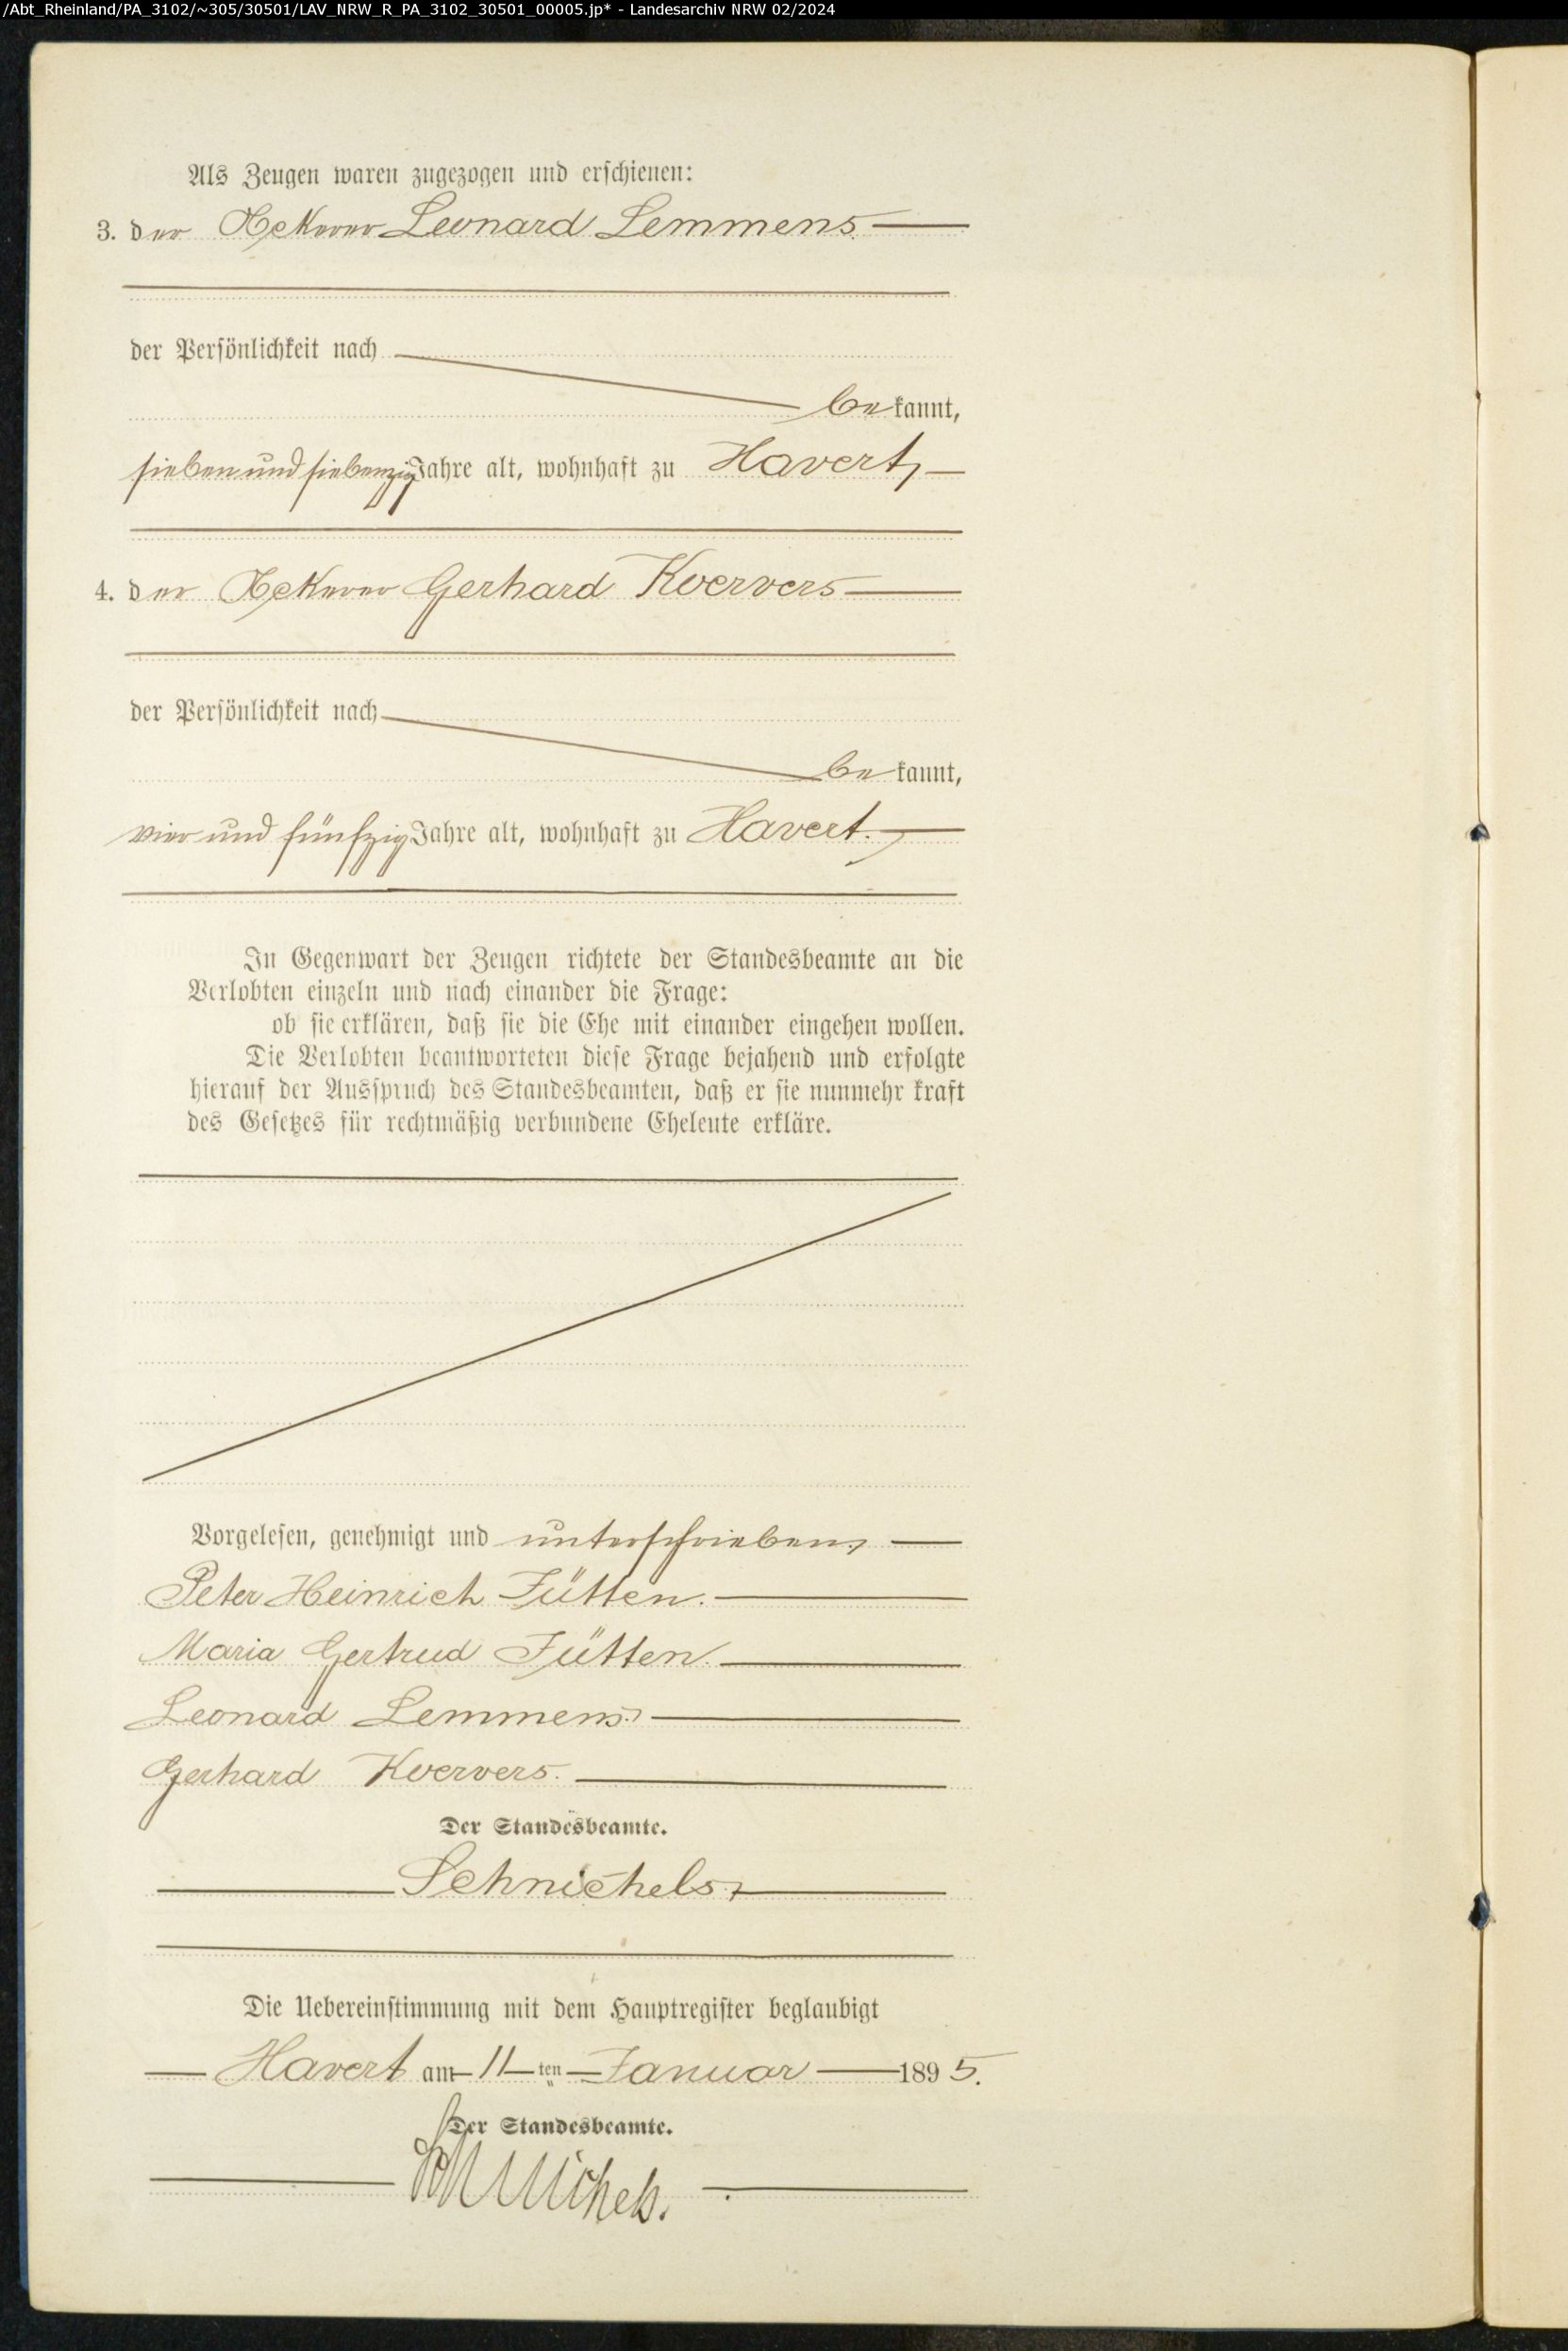 /Abt_Rheinland/PA_3102/~305/30501/LAV_NRW_R_PA_3102_30501_00005.jp* - Landesarchiv NRW 02/2024
Als Zeugen waren zugezogen und erschienen:
3. der Ackerer Leonard Lemmens
der Persönlichkeit nach
bekannt,
sieben und siebenzig Jahre alt, wohnhaft zu Havert,
4. der Ackerer Gerhard Koervers
der Persönlichkeit nach
bekannt,
vier und fünfzig Jahre alt, wohnhaft zu Havert.
In Gegenwart der Zeugen richtete der Standesbeamte an die
Verlobten einzeln und nach einander die Frage:
ob sie erklären, daß sie die Ehe mit einander eingehen wollen.
Die Verlobten beantworteten diese Frage bejahend und erfolgte
hierauf der Ausspruch des Standesbeamten, daß er sie nunmehr kraft
des Gesetzes für rechtmäßig verbundene Eheleute erkläre.
Vorgelesen, genehmigt und unterschrieben,
Peter Heinrich Jütten.
Maria Gertrud Jütten.
Leonard Lemmens.
Gerhard Koervers.
Der Standesbeamte.
Schnichels,
Die Uebereinstimmung mit dem Hauptregister beglaubigt
Havert am 11 ten Januar 1895.
Der Standesbeamte.
Schnichels.